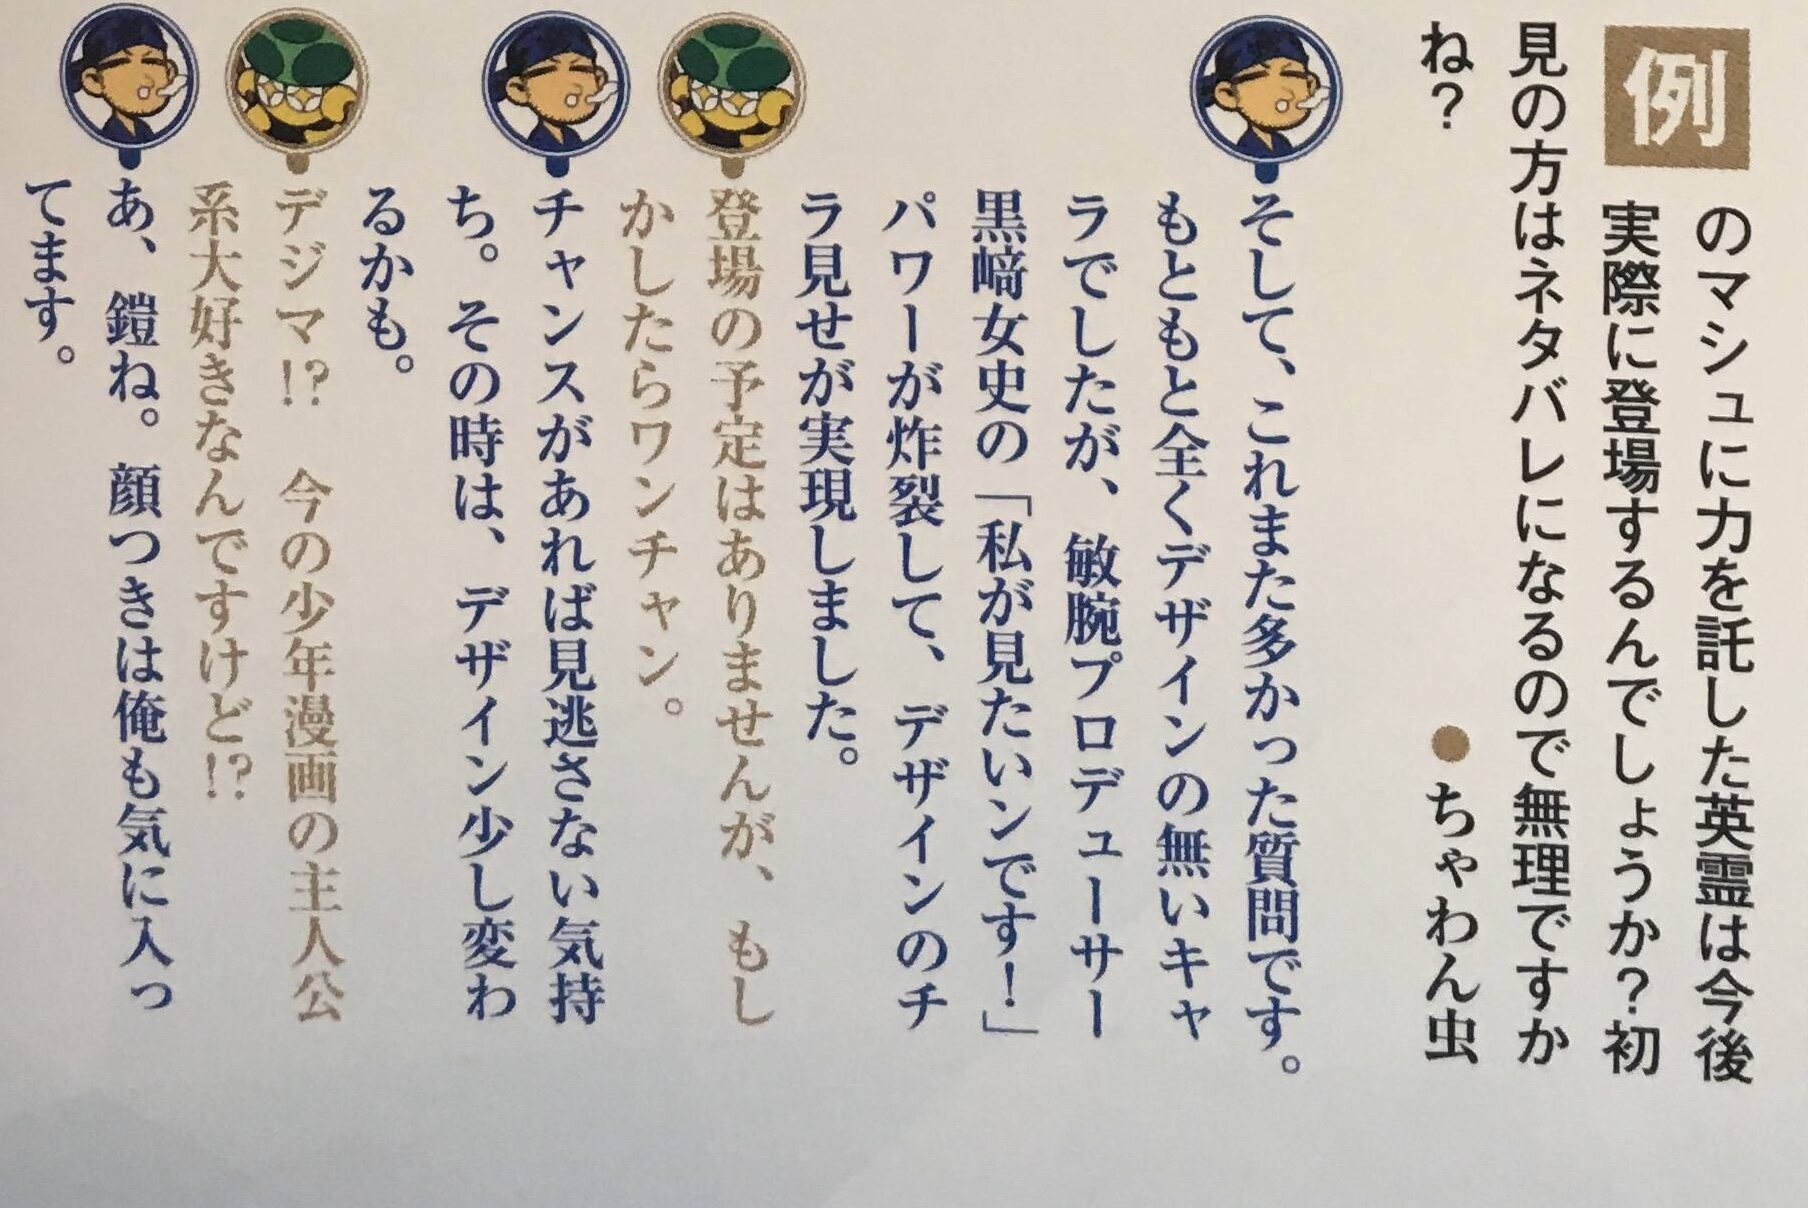 例のマシュに力を託した英霊は今後
実際に登場するんでしょうか？初
見の方はネタバレになるので無理ですか
ね？
●ちゃわん虫
そして、これまた多かった質問です。
もともと全くデザインの無いキャ
ラでしたが、敏腕プロデューサー
黒﨑女史の「私が見たいンです！」
パワーが炸裂して、デザインのチ
ラ見せが実現しました。
登場の予定はありませんが、もし
かしたらワンチャン。
チャンスがあれば見逃さない気持
ち。その時は、デザイン少し変わ
るかも。
デジマ!?　今の少年漫画の主人公
系大好きなんですけど!?
あ、鎧ね。顔つきは俺も気に入っ
てます。